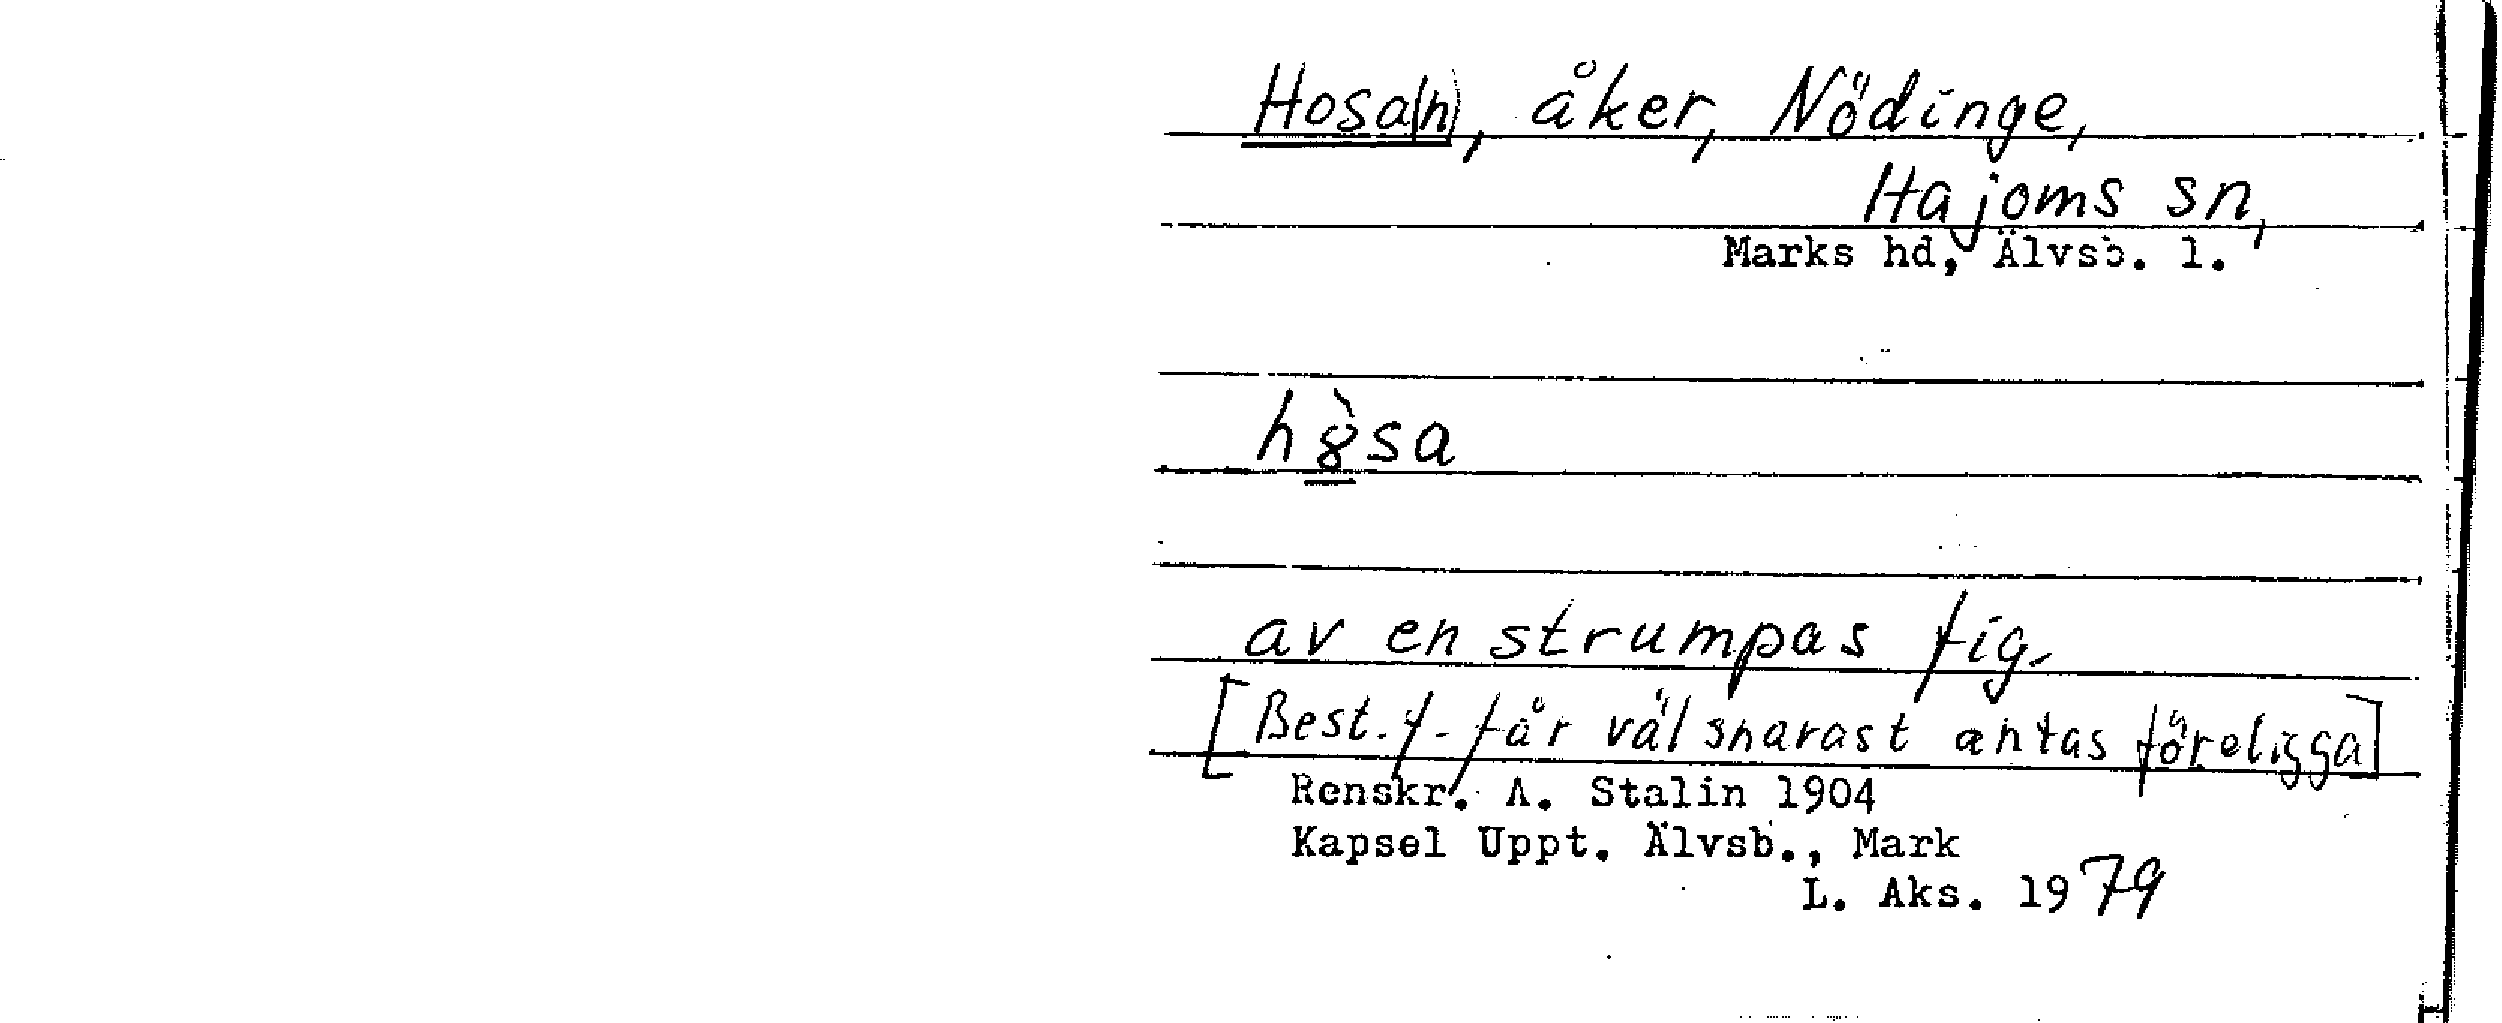 Hosa(n), åker, Nödinge,
Hajoms sn,
Marks hd, Älvsb. l.
h8̠̀sa
av en strumpas fig.
[Best. f. får väl snarast antas föreligga]
Renskr. A. Stalin 1904
Kapsel Uppt. Älvsb., Mark
L. Aks. 1979